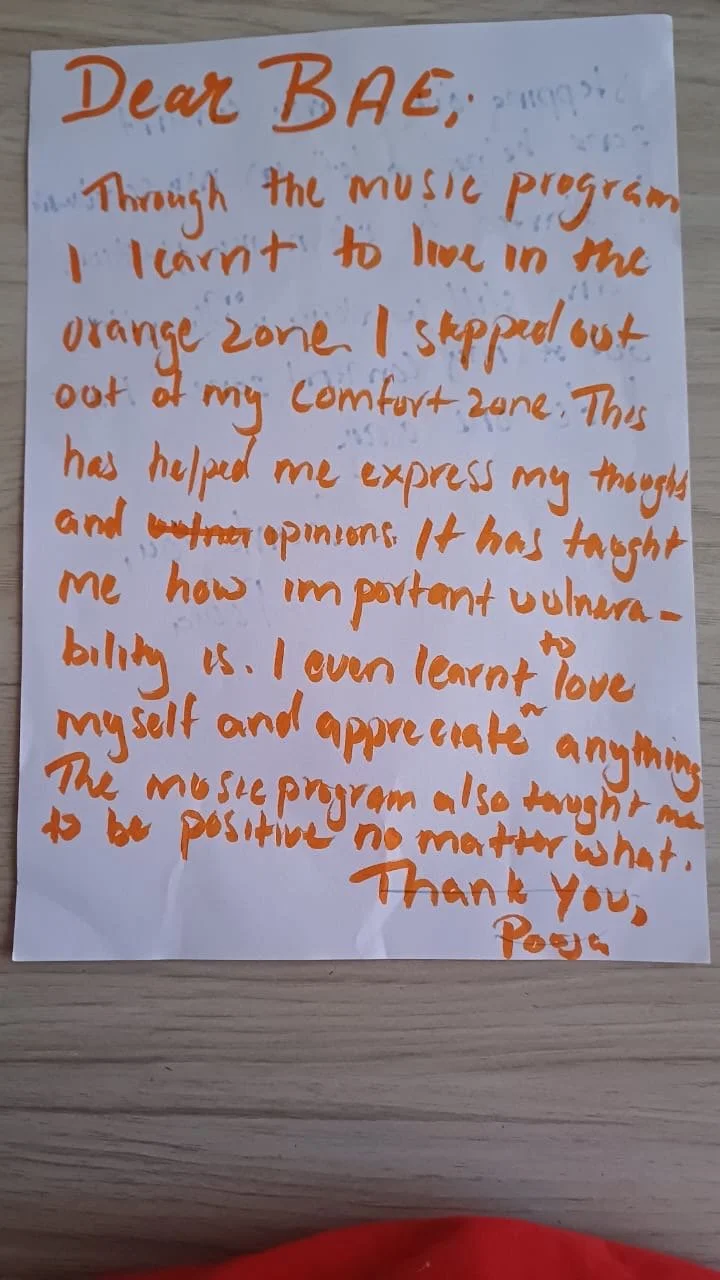 Dear BAE,
Through the music program
I learnt to live in the
orange zone. I stepped out
out of my comfort zone. This
has helped me express my thoughts
and opinions. It has taught
me how important vulnera-
bility is. I even learnt to love
myself and appreciate anything
The music program also taught me
to be positive no matter what.
Thank you,
Pooja